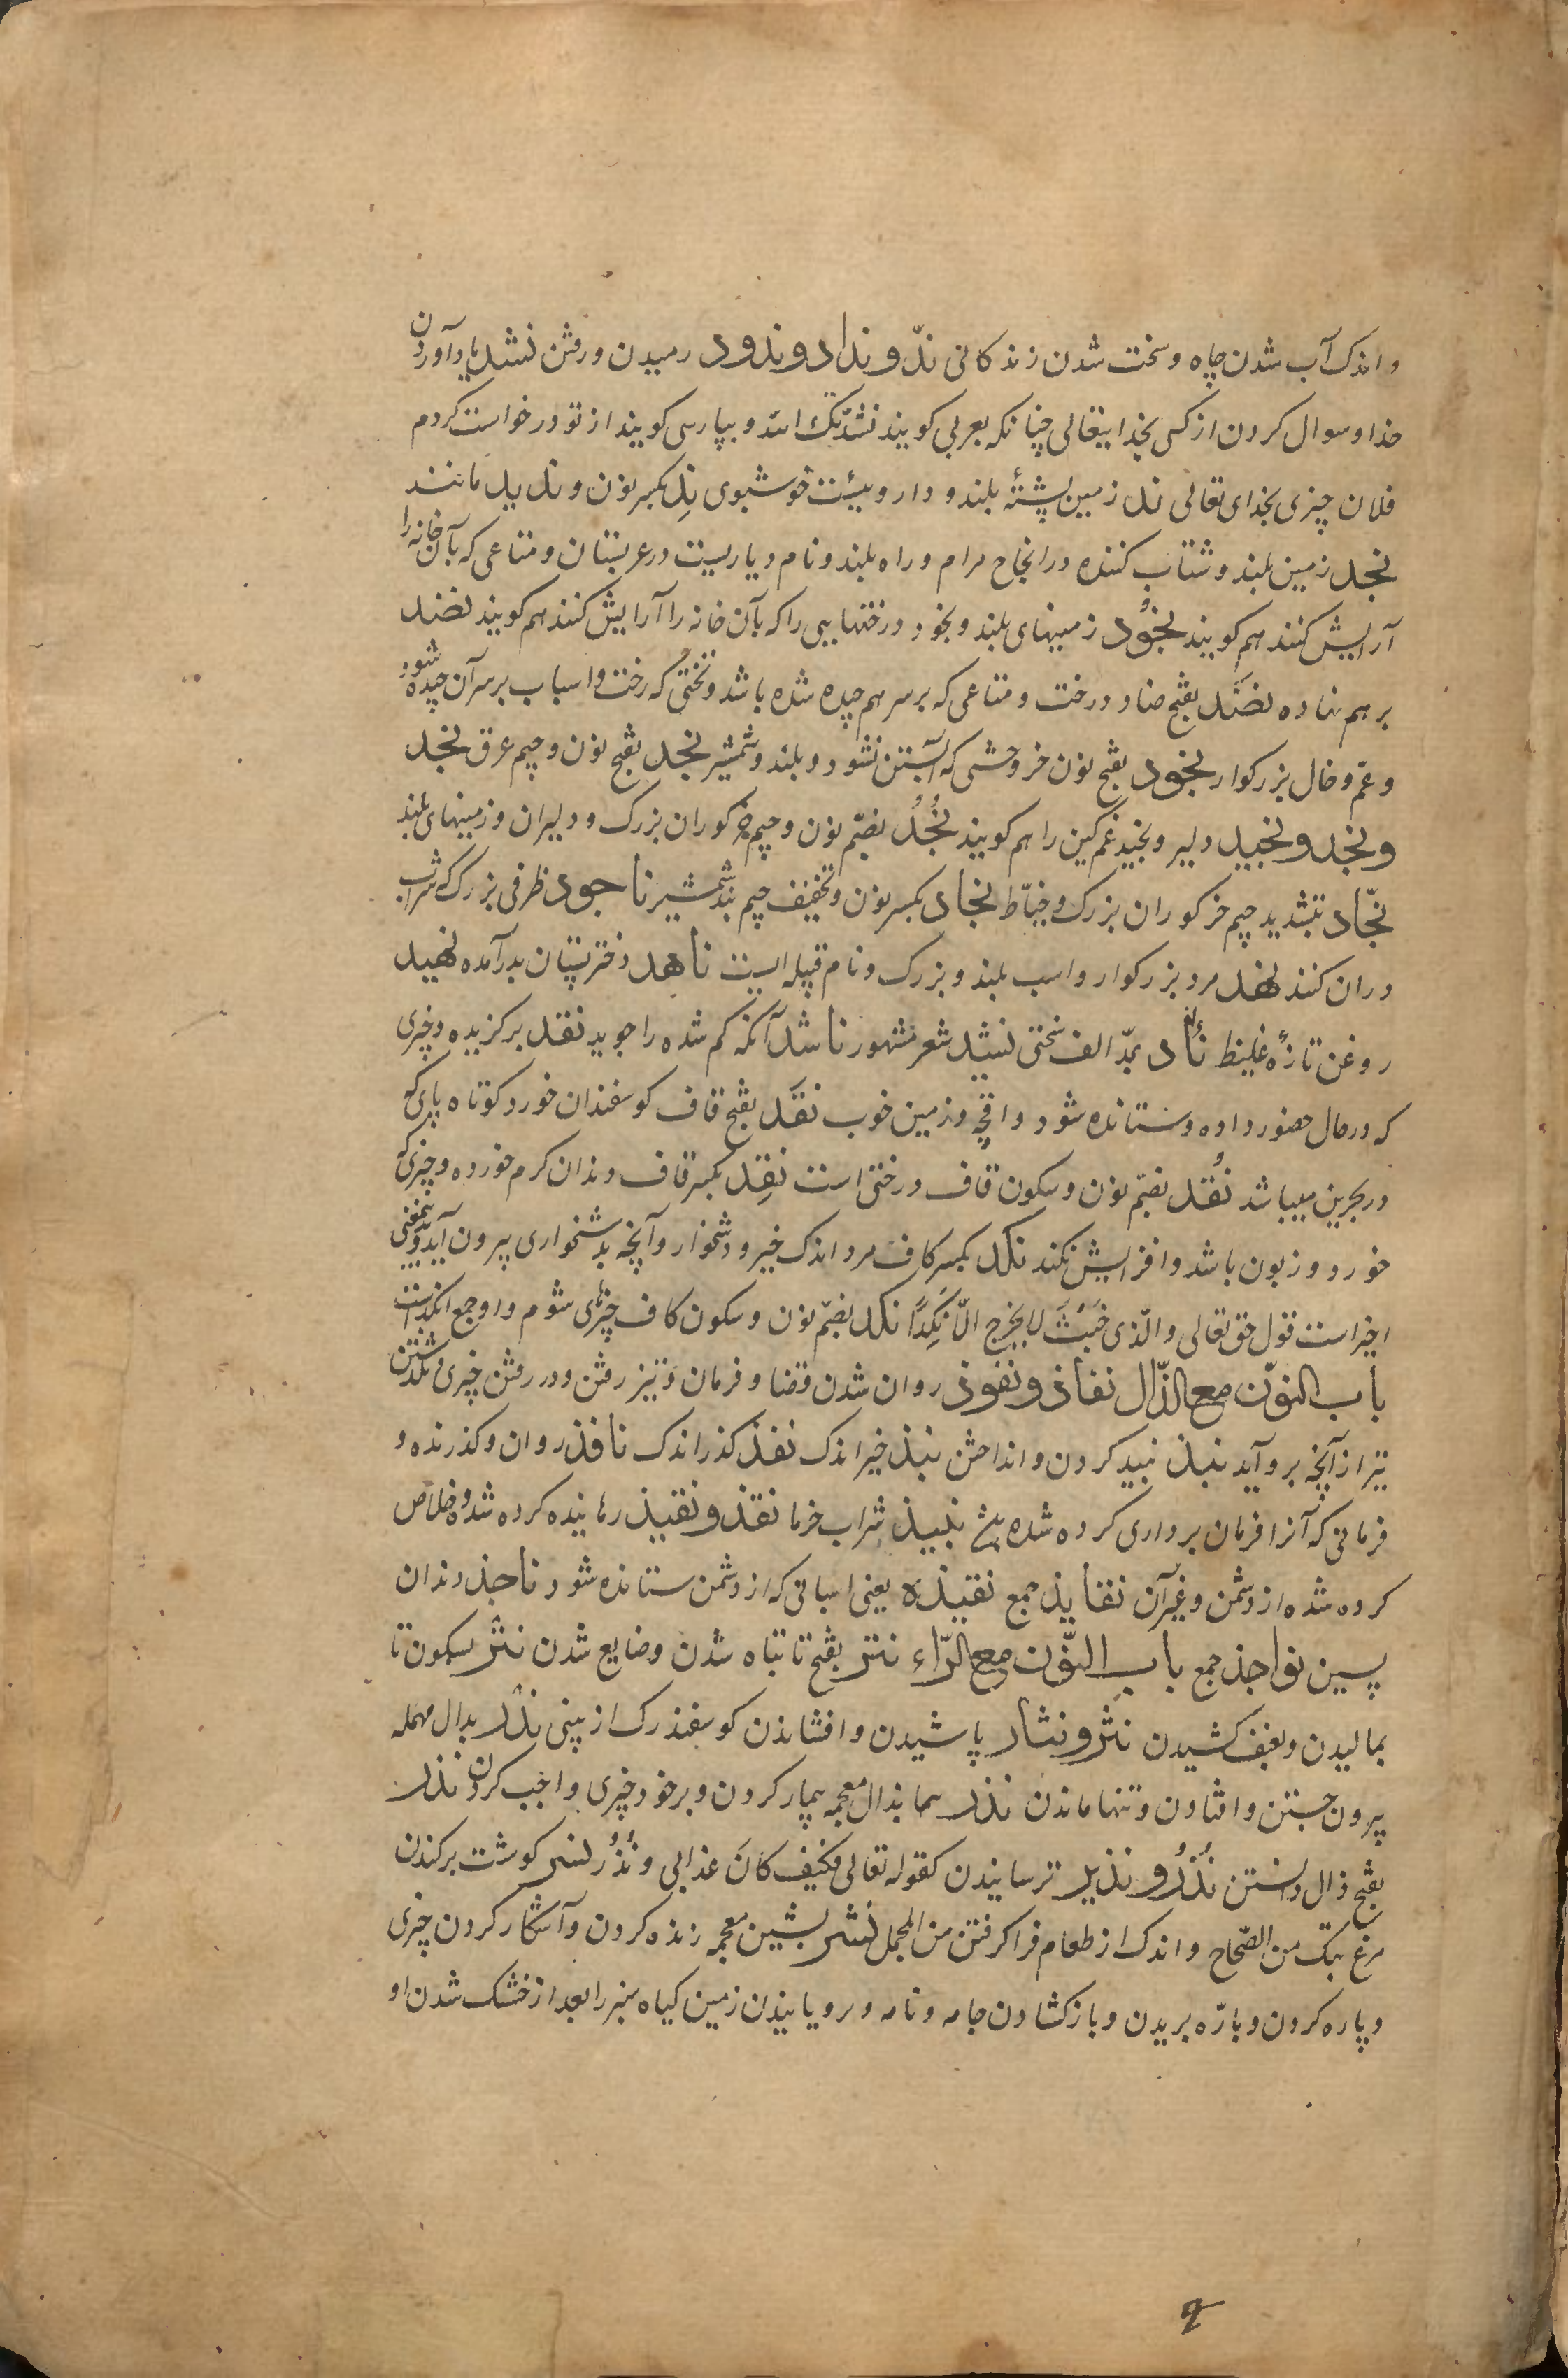 و اندک آب شدن چاه و سخت شدن زندکانی ندّ و نداد و ندود رمیدن و رفتن نشد یاد آوردن
خدا و سوال کردن از کسی بخدایتعالی چنانکه بعربی کویند نشدتک الله و بپارسی کویند از تو درخواست کردم
فلان چیزی بخدای تعالی ند زمین پشتهٔ بلند و داروییست خوشبوی نِد بکسر نون و ندید مانند
نجد زمین بلند و شتاب کننده در انجاح مرام و راه بلند و نام دیاریست در عربستان و متاعی که بآن خانه را
آرایش کنند هم کویند نجُود زمینهای بلند و بخود درختهایی را که بآن خانه را آرایش کنند هم کویند نضد
بر هم نهاده نضَد بفتح ضاد درخت و متاعی که بر سر هم چیده شده باشد و تختی که رخت و اسباب بر سر آن چیده شود
و عمّ و خال بزرکوار نجود بفتح نون خر وحشی که آبستن نشود و بلند و شمشیر نجد بفتح نون و جیم عرق نجد
و نجد و نجید دلیر و نجید غم کین را هم کویند نُجُد بضمّ نون و جیم خر کوران بزرک و دلیران و زمینهای بلند
نجّاد بتشدید جیم خر کوران بزرک و خیّاط نجاد بکسر نون و تخفیف جیم بند شمشیر ناجود ظرفی بزرک که شراب
در ان کنند نهد مرد بزرکوار و اسب بلند و بزرک و نام قبیله ایست ناهد دختر پستان بدر آمده نهید
روغن تازهٔ غلیظ نآد بمدّ الف سختی نشید شعر مشهور ناشد آنکه کم شده را جوید نقد برکزیده و چیزی
که در حال حضور داده و ستانده شود و اقچه و زمین خوب نقَد بفتح قاف کوسفندان خورد کوتاه پای که
در بحرین میباشد نُقد بضمّ نون و سکون قاف درختی است نقِد بکسر قاف دندان کرم خورده و چیزی که
خورد و زبون باشد و افزایش نکند نکد بکسر کاف مرد اندک خیر و دشخوار و آنچه بدشخواری بیرون آید و بمعنی
اخیر است قول حق تعالی و الّذی خَبُثَ لا یخرج الّا نکِدًا نکد بضمّ نون و سکون کاف چیزهای شوم و او جمع انکد است
باب النوّن مع الذّال نفاذ و نفوذ روان شدن قضا و فرمان و تیز رفتن و در رفتن چیزی و گذشتن
تیر از آنچه بر و آید نبذ نبید کردن و انداختن نبذ خیر اندک نفذ کذر اندک نافذ روان و کذرنده و
فرمانی که آنرا فرمان برداری کرده شده نبیذ شراب خرما نقذ و نقیذ رهانیده کرده شده و خلاص
کرده شده از دشمن و غیر آن نقایذ جمع نقیذه یعنی اسبانی که از دشمن ستانده شود ناجذ دندان
پسین نواجذ جمع باب النّون مع الرّاء نتر بفتح تا تباه شدن و ضایع شدن نتر بسکون تا
بمالیدن و بعنف کشیدن نثر و نثار پاشیدن و افشاندن کوسفند رک از بینی ندر بدال مهمله
بیرون جستن و افتادن و تنها ماندن نذر بذال معجمه بیمار کردن و بر خود چیزی واجب کردن نذر
بفتح ذال دانستن نُذُر و نذیر ترسانیدن کقوله تعالی فکیف کانَ عذابی و نُذُر نسر کوشت برکندن
مرغ بتک من الصّحاح و اندک از طعام فرا کرفتن من المجمل نشر بشین معجمه زنده کردن و آشکار کردن چیزی
و پاره کردن و بارّه بریدن و باز کشادن جامه و نامه و رویانیدن زمین کیاه سبز را بعد از خشک شدن او